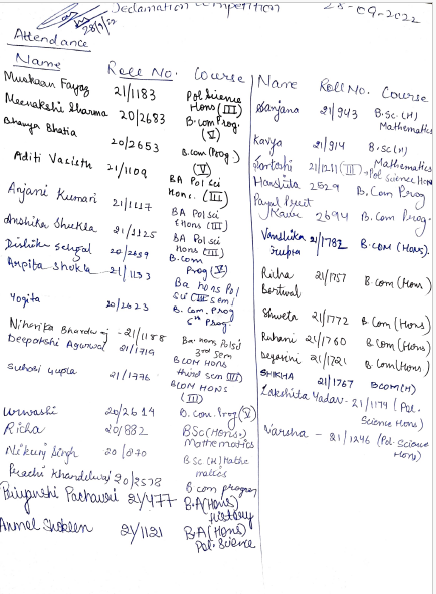 Declamation Competition 28-09-2022
28/9/22
Attendance
Name Roll No. Course
Muskaan Fayaz 21/1183 Pol Science Hons (III)
Meenakshi Sharma 20/2683 B.com Prog. (V)
Bhavya Bhatia 20/2653 B.com (Prog) (V)
Aditi Vasisth 21/1109 BA Pol Sci Hons. (III)
Anjani Kumari 21/1117 BA Pol Sci (Hons) (III)
Anshika Shukla 21/1125 BA Pol Sci Hons (III)
20/2659 B.com Prog (V)
Arpita Shukla 21/1133 Ba hons Pol Sci (III sem)
Yogita 20/2623 B. Com. Prog 5th Prog
Niharika Bhardwaj - 21/1188 Ba. hons Polsci 3rd Sem
Deepakshi Agarwal 21/1719 BCOM HONS third sem (III)
Suhasi Gupta 21/1776 BCOM HONS (III)
Urwashi 20/2614 B. com. Prog (V)
Richa 20/882 BSc (Hons.) Mathematics
Nikunj Singh 20/870 B Sc (H) Mathematics
Prachi Khandelwal 20/2578 B com program
Priyanshi Pachauri 21/477 B.A (Hons) History
Anmol Shokeen 21/1121 B.A (Hons) Pol. Science
Name Roll No. Course
Sanjana 21/943 B.Sc. (H) Mathematics
Kavya 21/914 B.Sc (H) Mathematics
Santoshi 21/1211 (III) Pol Science Hon
Harshita 2529 B. Com Prog
Payal Preet Kaur 2694 B. Com Prog.
Vanshika Gupta 21/1782 B.COM (Hons).
Richa 21/1757 B.com (Hons)
Shweta 21/1772 B Com (Hons)
Ruhani 21/1760 B Com (Hons)
21/1721 B.com (Hons)
SHIKHA 21/1767 BCOM (H)
Lakshita Yadav - 21/1179 (Pol. Science Hons)
Varsha - 21/1246 (Pol. Science Hons)